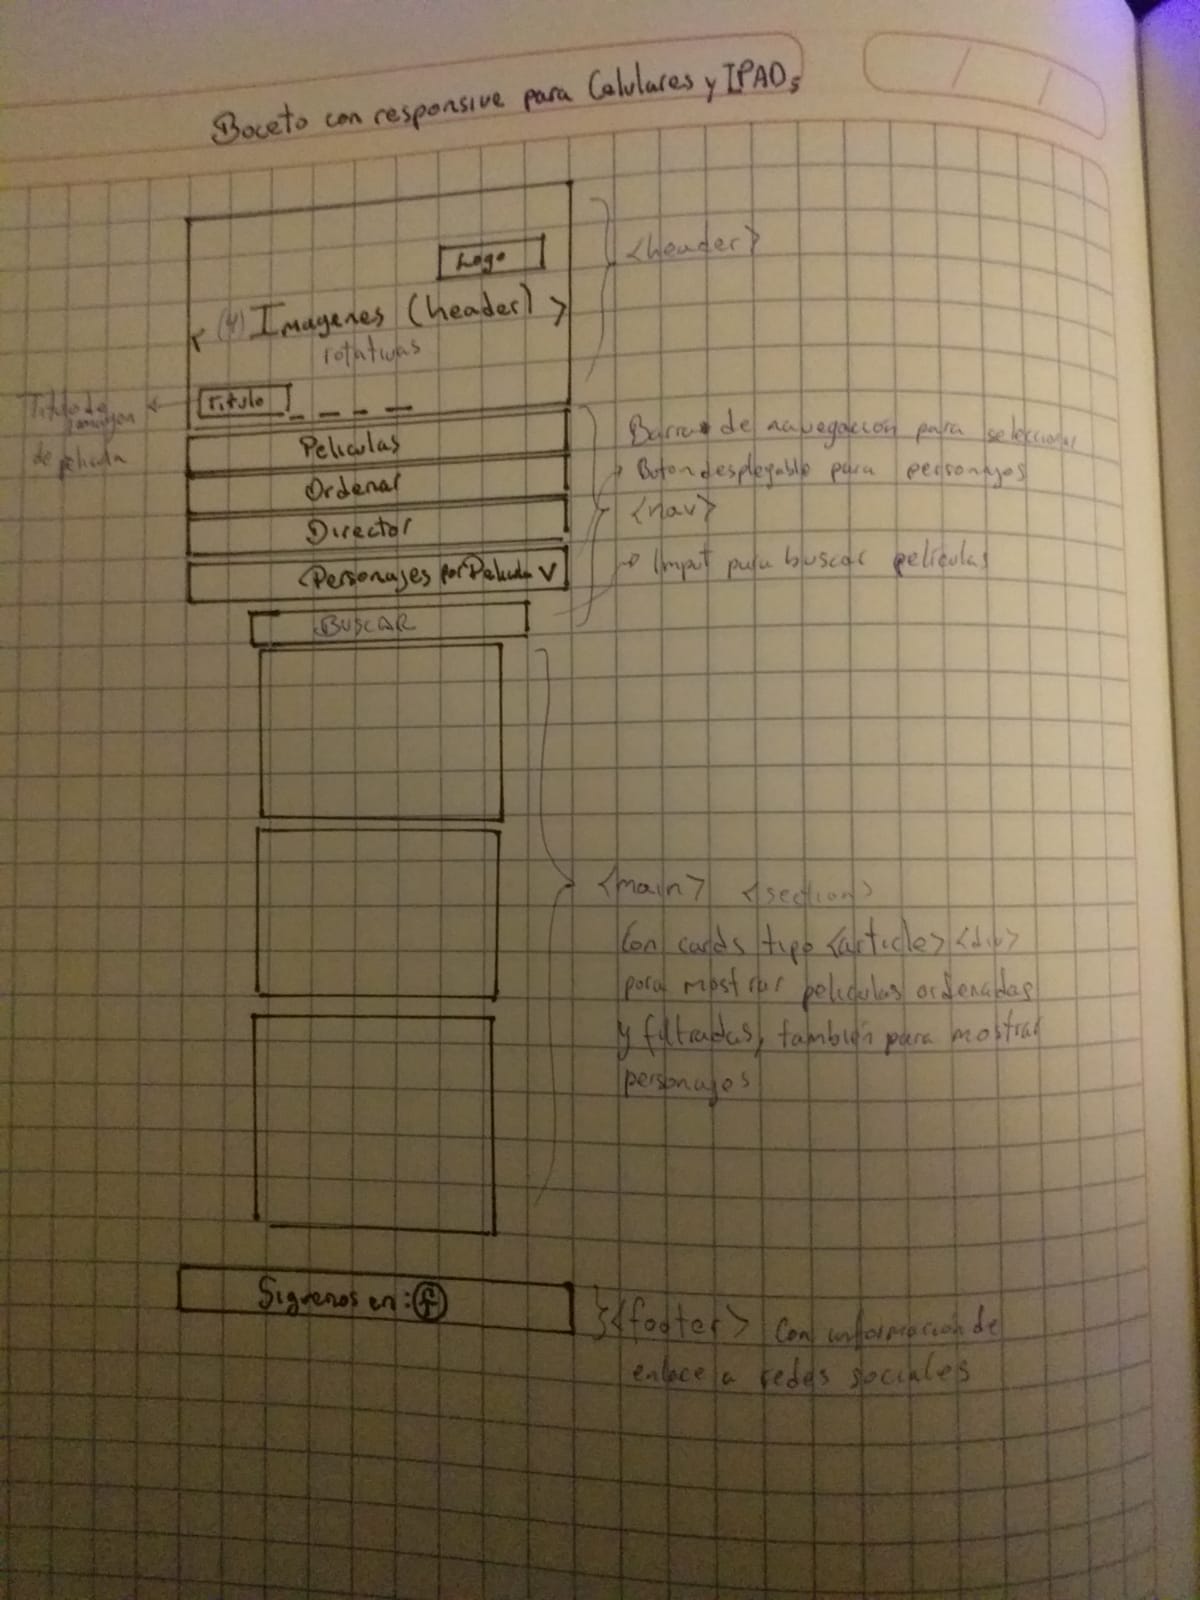 Boceto con responsive para Celulares y IPADs
Logo
<header>
< (4) Imagenes (header) >
rotativas
Titulo
Titulo de
imagen
de pelicula
Peliculas
Ordenar
Director
Personajes por Pelicula V
BUSCAR
Barra de navegación para seleccionar
Boton desplegable para personajes
<nav>
Imput para buscar películas
<main> <section>
Con cards tipo <article> <div>
para mostrar peliculas ordenadas
y filtradas, también para mostrar
personajes
Siguenos en: f
<footer> Con información de
enlace a redes sociales